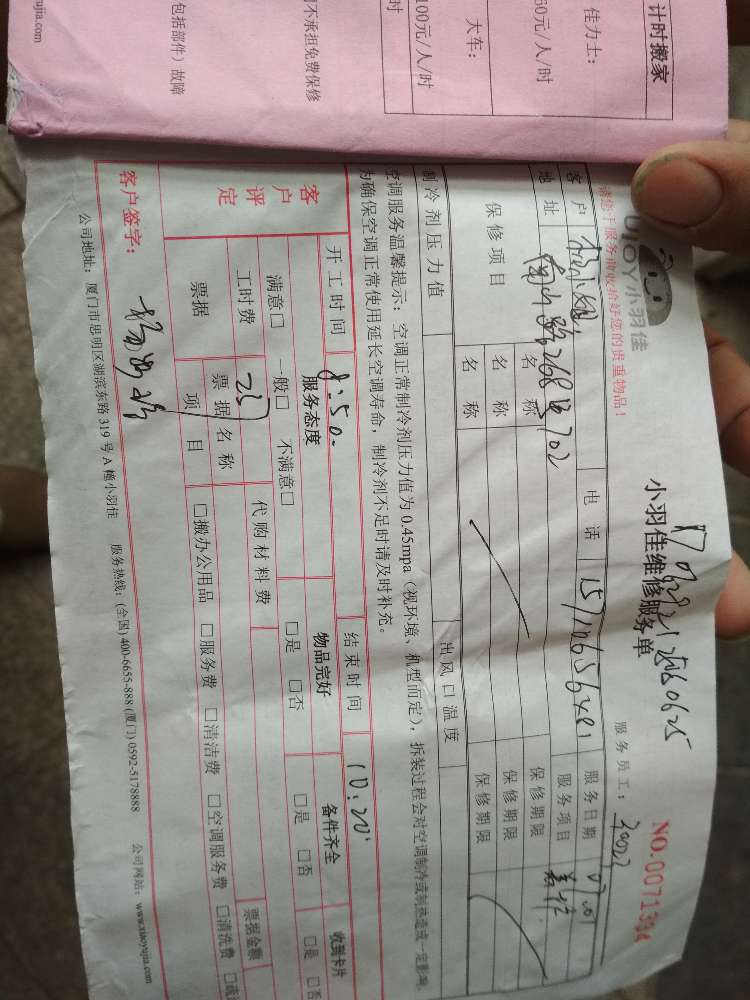 计时搬家
佳力士：
60元/人/时
大车：
100元/人/时
时
不承担免费保修
包括部件）故障
yujia.com
UJOY小羽佳
小羽佳维修服务单
NO.0071394
请您于服务前收拾好您的贵重物品！
服务员工：
客户
电话
服务日期
07.01
地址
268号702
服务项目
保修项目
名称
保修期限
名称
保修期限
名称
保修期限
制冷剂压力值
出风口温度
空调服务温馨提示：空调正常制冷剂压力值为 0.45mpa（视环境、机型而定），拆装过程会对空调制冷或制热造成一定影响，
为确保空调正常使用延长空调寿命，制冷剂不足时请及时补充。
开工时间
8:50
结束时间
10:20
客户评定
服务态度
物品完好
备件齐全
收到卡片
满意□ 一般□ 不满意□
□是 □否
□是 □否
□是 □否
工时费
代购材料费
票据金额
票据
票据名称
项目
□搬办公用品 □服务费 □清洁费 □空调服务费 □清洗费
客户签字：
公司地址：厦门市思明区湖滨东路 319 号 A 幢小羽佳 服务热线：(全国) 400-6655-888 (厦门) 0592-5178888 公司网站：www.xiaoyujia.com